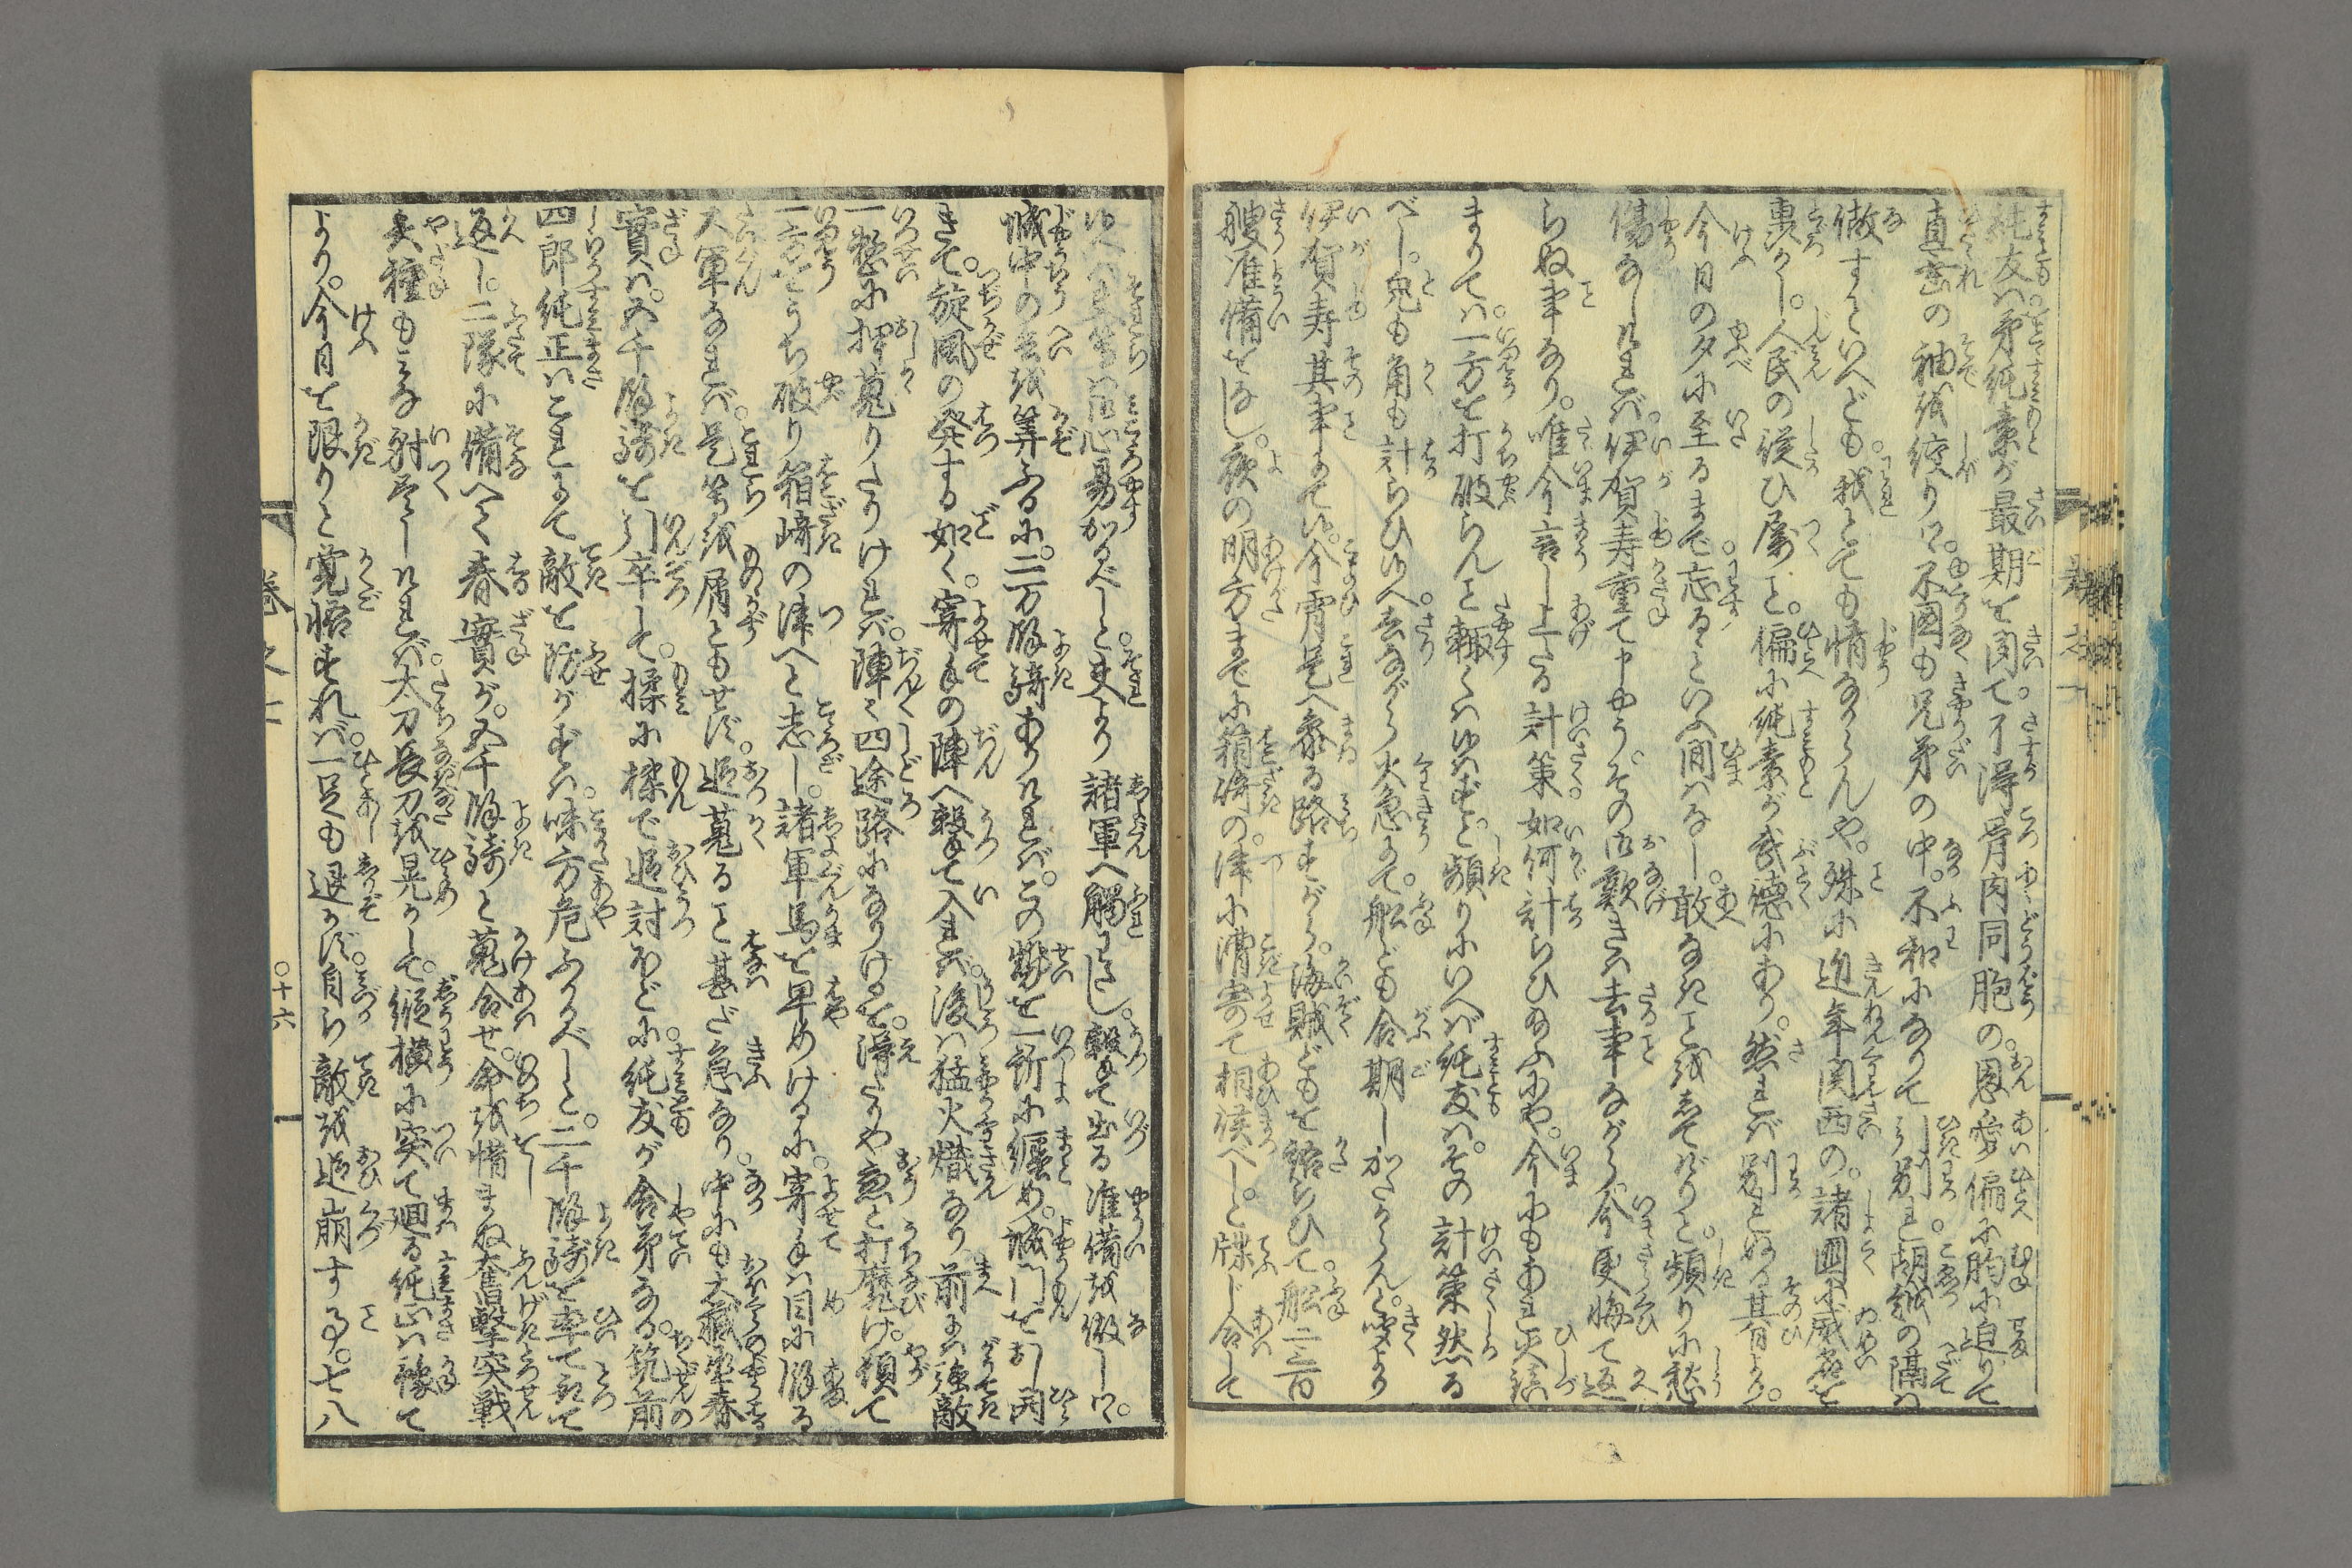 純友は弟純素が最期を聞て。不得骨肉同胞の恩愛偏に胸に迫りて
直垂の袖を絞りつ。不図も兄弟の中。不和になりて引別れ。胡越の隔は
做すといへども。我とても情なからんや。殊に近年関西の。諸国に威名を
轟かし。人民の従ひ属と。偏に純素が武徳にあり。然れば別れぬる其日より。
今日の夕に至るまで。忘るといふ間はなし。敢なきことをしてげりと。頻りに愁
傷なしければ。伊賀寿重て申やう。その御歎きは去事ながら。今更悔て返
らぬ事なり。唯今言し上たる計策。如何計らひ給ふにや。今にもあれ火
まりては。一方を打破らんと輙くは候はずと。頻りにいへば純友は。その計策然る
べし。兎も角も計らひ候へ。去ながら火急にて。船ども合期しがたからん。と聞より
伊賀寿其事にて候。今宵是へ参る路すがら。海賊どもを語らひて。船二三百
艘准備をなし。夜の明方までに箱崎の。津に漕寄て相俟べし。と牒じ合して
候へば其等は御心易かるべしと。夫より諸軍へ触わたし。殺て出る准備を做しつ。
城中の兵を算ふるに。二万餘騎ありければ。この勢を一所に纏め。城門をおし開
きて。旋風の発する如く。寄手の陣へ殺て入れば。後は猛火熾なり前には強敵
一整に押蒐りたりければ。陣々四途路になりけるを。得たりや応と打靡け。頓て
一方をうち破り箱崎の津へと志し。諸軍馬を早めけるに。寄手は目に餘る
大軍なれば。是等を屑ともせず。追蒐ること甚だ急なり。中にも大蔵丞春
實は。五千餘騎を引率して。揉に揉で追討ほどに。純友が舎弟なる。筑前の
四郎純正はこれにて敵を防がずは。味方危ふかるべしと。二千餘騎を率て取て
返し。二隊に備へて春實が。五千餘騎と蒐合せ。命を惜まね奮撃突戦
矢種もみな射尽しければ。大刀長刀を晃かして。縦横に突て廻る純正は豫て
より。今日を限りと覚悟すれば。一足も退かず。自ら敵を追崩する事。七八
巻之十
○十六